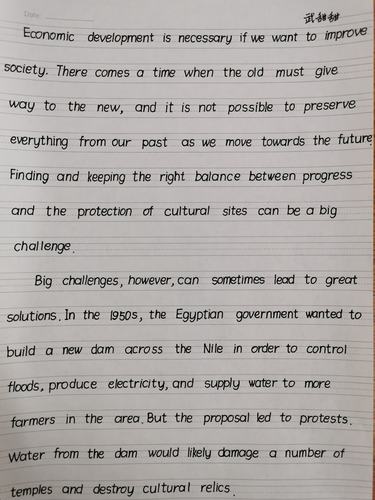 Date
武甜甜
Economic development is necessary if we want to improve
society. There comes a time when the old must give
way to the new, and it is not possible to preserve
everything from our past as we move towards the future.
Finding and keeping the right balance between progress
and the protection of cultural sites can be a big
challenge.
Big challenges, however, can sometimes lead to great
solutions. In the 1950s, the Egyptian government wanted to
build a new dam across the Nile in order to control
floods, produce electricity, and supply water to more
farmers in the area. But the proposal led to protests.
Water from the dam would likely damage a number of
temples and destroy cultural relics.